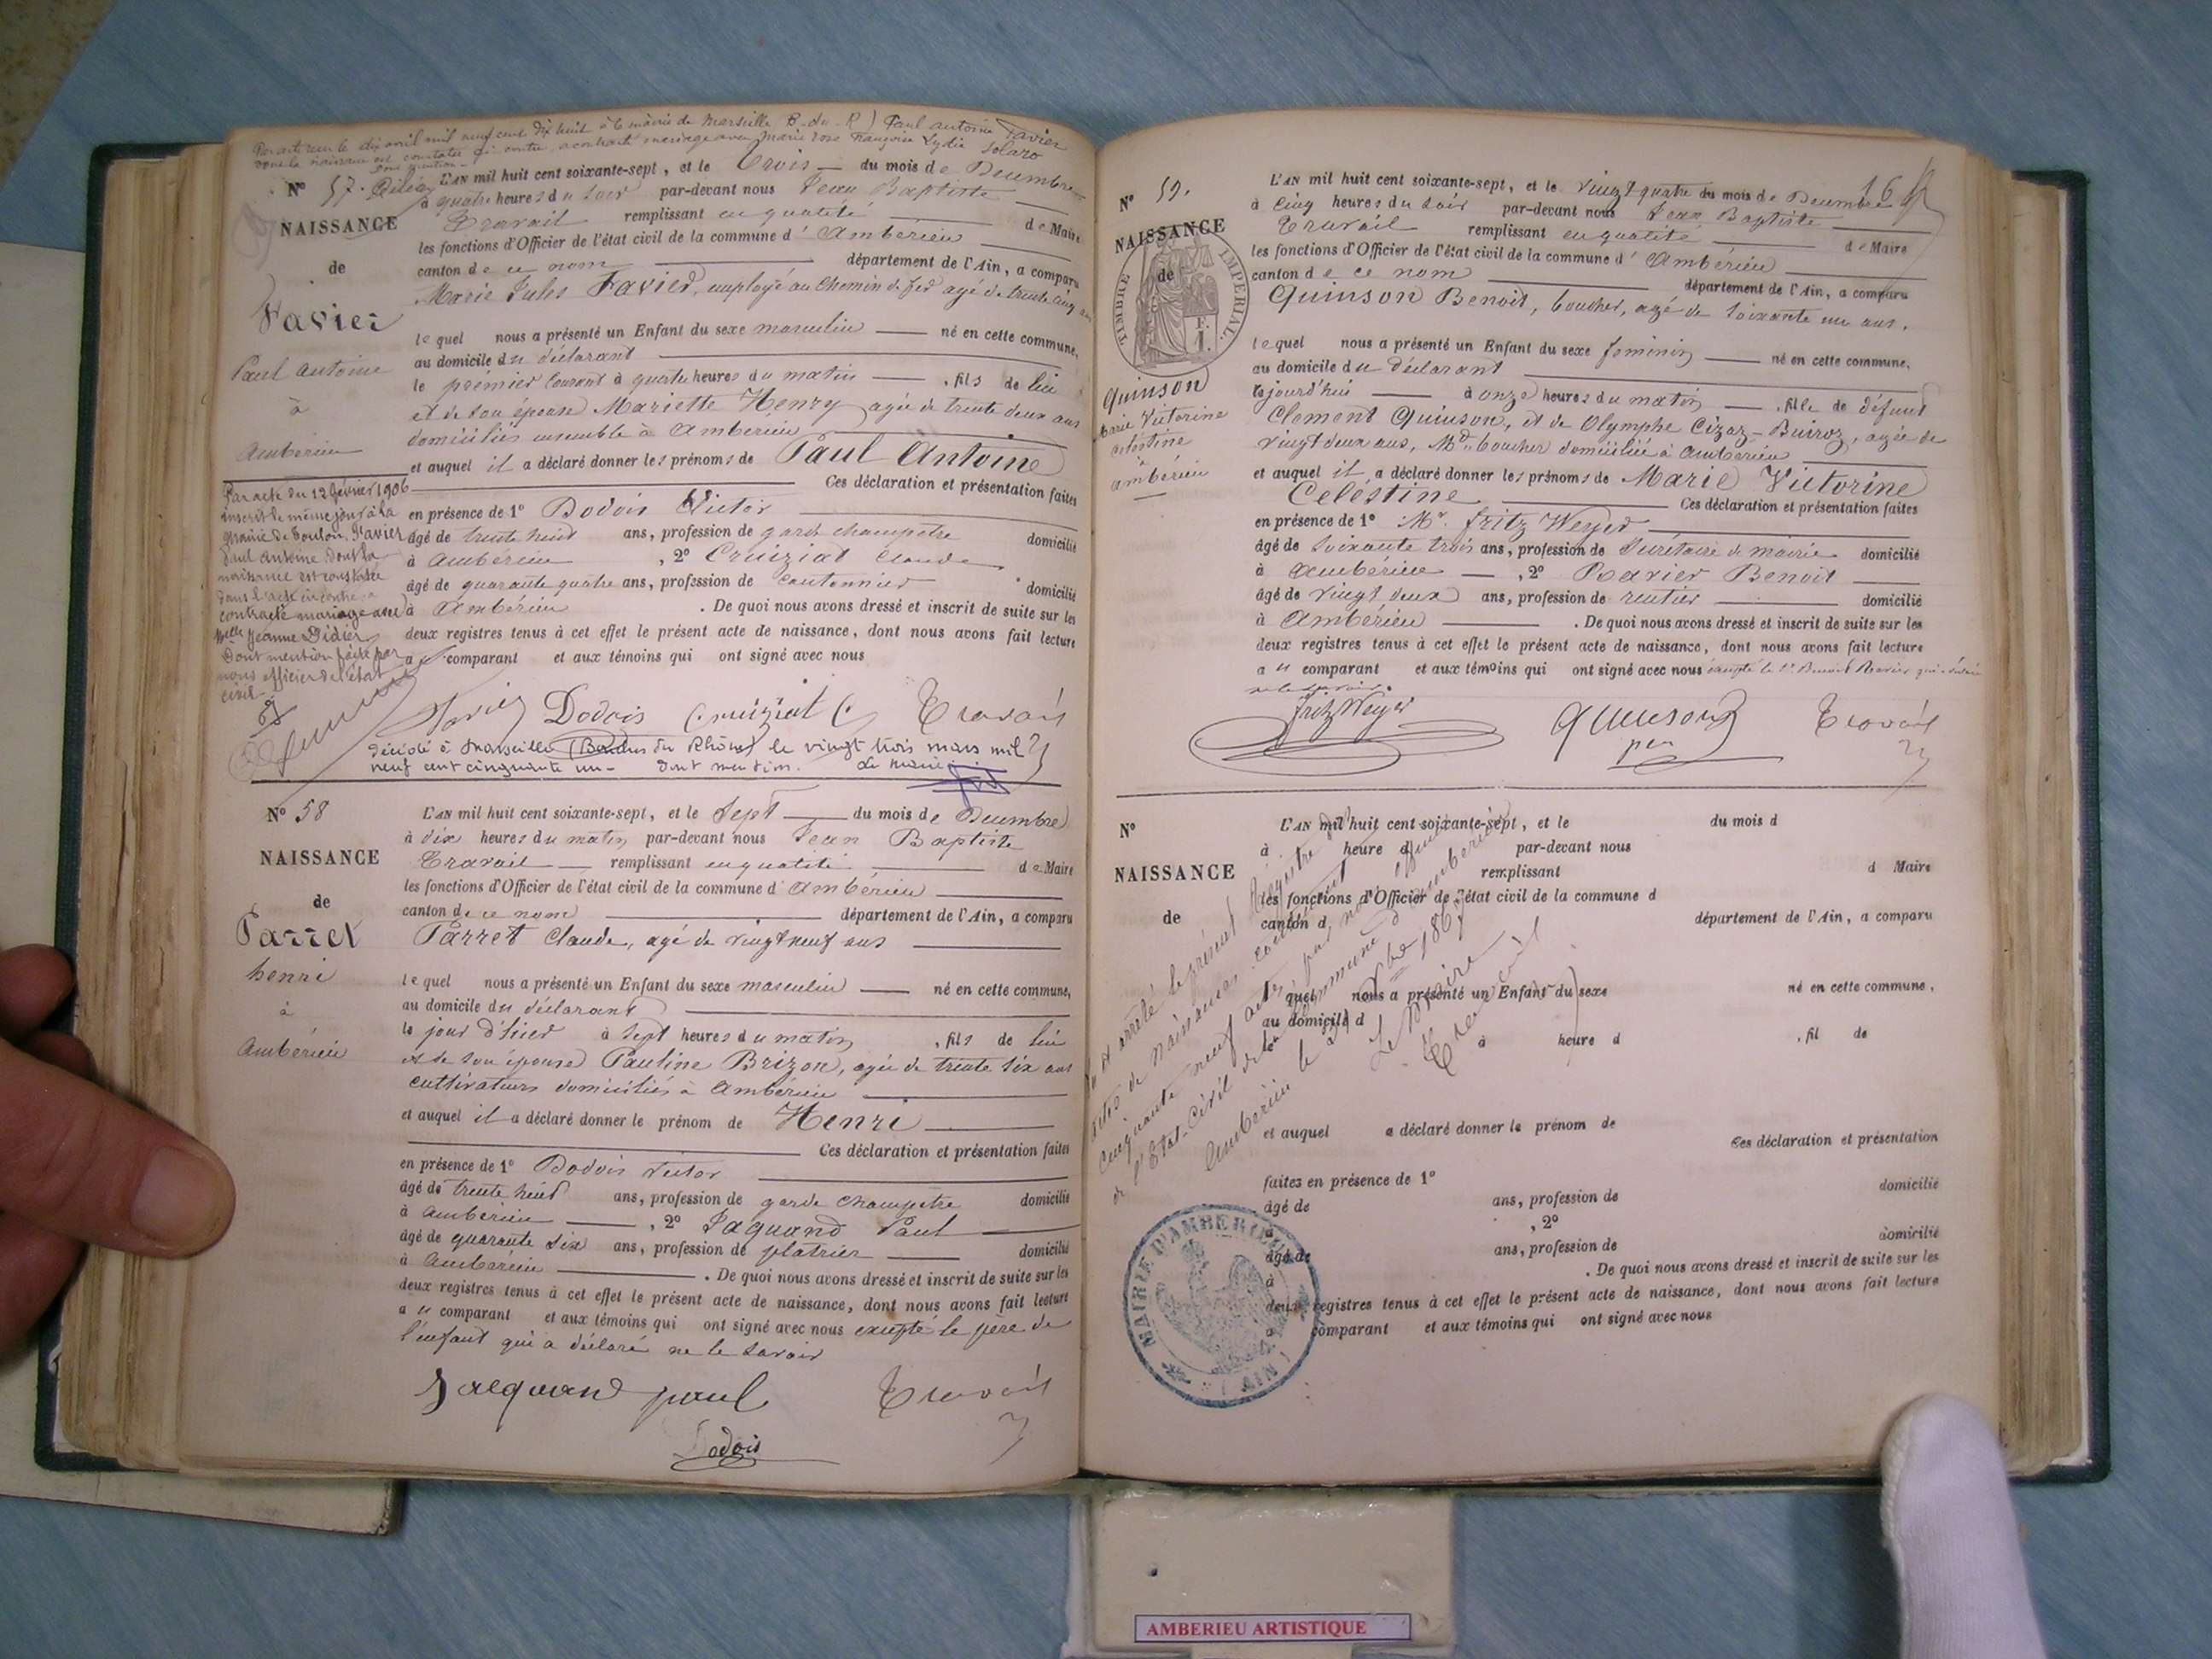 Par acte reçu le dix avril mil neuf cent dix huit à la mairie de Marseille B.-du-R) Paul antoine Favier
dont la naissance est constatée ci contre, a contracté mariage avec Marie Rose Françoise Lydie Solaro
Dont mention
N° 57.
NAISSANCE
de
Favier
Paul Antoine
à
Ambérieu
Par acte du 12 février 1906
inscrit le même jour à la
mairie de Toulon, Favier
Paul Antoine dont la
naissance est constatée
dans l'acte ci contre a
contracté mariage avec
Melle Jeanne Didier
Dont mention faite par
nous officier de l'état
civil
L'AN mil huit cent soixante-sept, et le Trois du mois de Décembre
à quatre heures du soir par-devant nous Jean Baptiste
Travail remplissant en qualité de Maire
les fonctions d'Officier de l'état civil de la commune d'Ambérieu
canton de ce nom département de l'Ain, a comparu
Marie Jules Favier, employé au Chemin de fer agé de trente cinq ans
lequel nous a présenté un Enfant du sexe masculin né en cette commune,
au domicile du déclarant
le premier courant à quatre heures du matin, fils de lui
et de son épouse Mariette Henry agée de trente deux ans
domiciliés ensemble à Ambérieu
et auquel il a déclaré donner les prénoms de Paul Antoine
Ces déclaration et présentation faites
en présence de 1° Dodois Victor
âgé de trente huit ans, profession de garde champêtre domicilié
à Ambérieu, 2° Cruiziat Claude
âgé de quarante quatre ans, profession de cantonnier domicilié
à Ambérieu. De quoi nous avons dressé et inscrit de suite sur les
deux registres tenus à cet effet le présent acte de naissance, dont nous avons fait lecture
au comparant et aux témoins qui ont signé avec nous
Favier Dodois Cruiziat C. Travail
décédé à Marseille (Bouches du Rhône) le vingt trois mars mil
neuf cent cinquante un - dont mention. Le Maire
N° 58
NAISSANCE
de
Parret
henri
à
Ambérieu
L'AN mil huit cent soixante-sept, et le Sept du mois de Décembre
à dix heures du matin par-devant nous Jean Baptiste
Travail remplissant en qualité de Maire
les fonctions d'Officier de l'état civil de la commune d'Ambérieu
canton de ce nom département de l'Ain, a comparu
Parret Claude, agé de vingt neuf ans
lequel nous a présenté un Enfant du sexe masculin né en cette commune,
au domicile du déclarant
le jour d'hier à Sept heures du matin, fils de lui
et de son épouse Pauline Brizon, agée de trente six ans
cultivateurs domiciliés à Ambérieu
et auquel il a déclaré donner le prénom de Henri
Ces déclaration et présentation faites
en présence de 1° Dodois Victor
âgé de trente huit ans, profession de garde champêtre domicilié
à Ambérieu, 2° Jaquand Paul
âgé de quarante six ans, profession de plâtrier domicilié
à Ambérieu. De quoi nous avons dressé et inscrit de suite sur les
deux registres tenus à cet effet le présent acte de naissance, dont nous avons fait lecture
au comparant et aux témoins qui ont signé avec nous excepté le père de
l'enfant qui a déclaré ne le savoir
Jacquand paul Travail
Dodois
16
N° 59.
NAISSANCE
de
TIMBRE IMPERIAL.
F.
1.
Quinson
Marie Victorine
Celestine
à
ambérieu
L'AN mil huit cent soixante-sept, et le vingt quatre du mois de Décembre
à cinq heures du soir par-devant nous Jean Baptiste
Travail remplissant en qualité de Maire
les fonctions d'Officier de l'état civil de la commune d'Ambérieu
canton de ce nom département de l'Ain, a comparu
Quinson Benoit, boucher, agé de soixante un ans.
lequel nous a présenté un Enfant du sexe feminin né en cette commune.
au domicile du déclarant
aujourd'hui à onze heures du matin, fille de défunt
Clement Quinson, et de Olymphe Cizaz-Buiroz, agée de
vingt deux ans, Mde boucher domiciliée à Ambérieu
et auquel il a déclaré donner les prénoms de Marie Victorine
Celéstine Ces déclaration et présentation faites
en présence de 1° Mr. Fritz Weyer
âgé de soixante trois ans, profession de Secrétaire de mairie domicilié
à Ambérieu, 2° Ravier Benoit
âgé de vingt deux ans, profession de rentier domicilié
à Ambérieu. De quoi nous avons dressé et inscrit de suite sur les
deux registres tenus à cet effet le présent acte de naissance, dont nous avons fait lecture
au comparant et aux témoins qui ont signé avec nous excepté le Sr Benoit Ravier qui a déclaré
ne le savoir.
Fritz Weyer Quinson Travail
N°
NAISSANCE
de
L'AN mil huit cent soixante-sept, et le du mois d
à heure d par-devant nous
remplissant d Maire
les fonctions d'Officier de l'état civil de la commune d
canton d département de l'Ain, a comparu
l quel nous a présenté un Enfant du sexe né en cette commune.
au domicile d
le à heure d, fil de
et auquel a déclaré donner le prénom de
Ces déclaration et présentation
faites en présence de 1°
âgé de ans, profession de domicilié
à, 2°
âgé de ans, profession de domicilié
à. De quoi nous avons dressé et inscrit de suite sur les
deux registres tenus à cet effet le présent acte de naissance, dont nous avons fait lecture
a comparant et aux témoins qui ont signé avec nous
Vu et arrêté le présent Registre
actes de naissances contenant
cinquante neuf actes par nous officier
de l'Etat-Civil de la Commune d'Ambérieu
Ambérieu le 31 Xbre 1867
Le Maire
Travail
MAIRIE D'AMBERIEU
(AIN)
AMBERIEU ARTISTIQUE